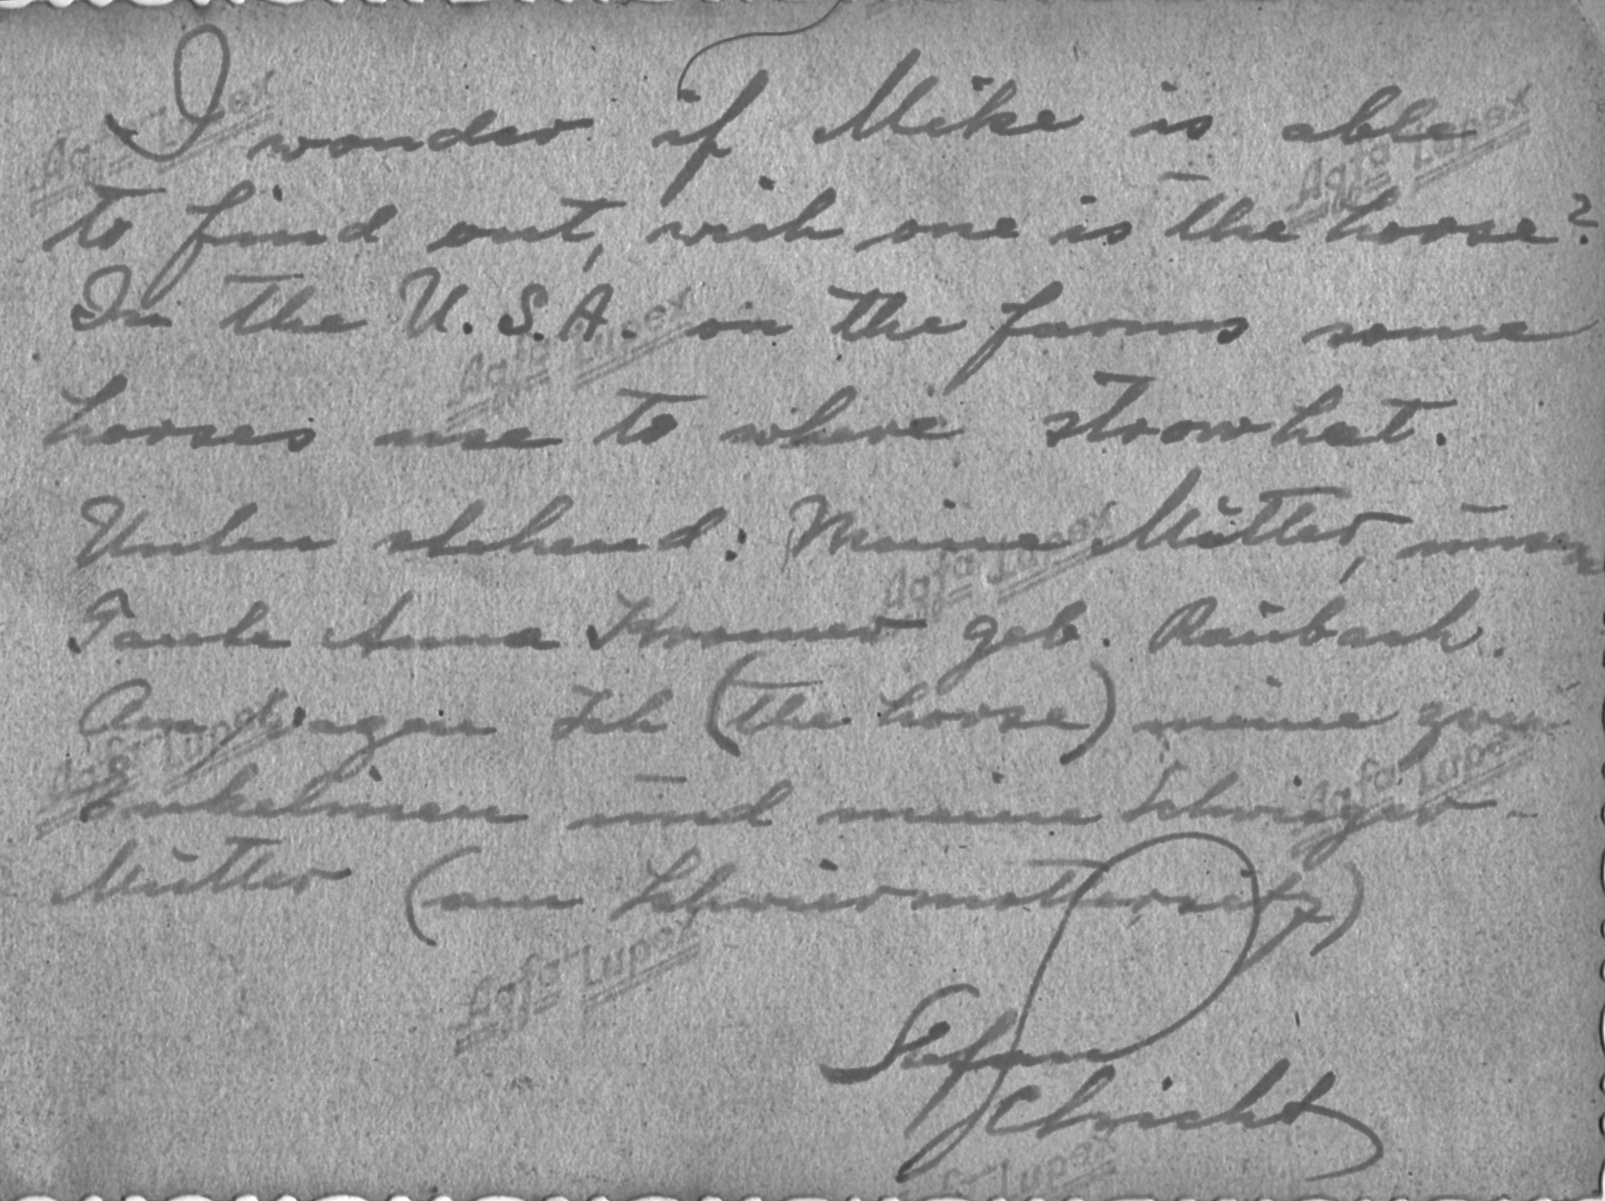 I wonder if Mike is able
to find out, wich one is the hoorse?
In the U.S.A. on the farms some
hoorses use to where strowhat.
Unten stehend: Meine Mutter,
Tante Anna Krommer geb. Raubach.
Am Wagen Ich (the hoorse) meine zwei
Enkelinnen und meine Schwieger-
Mutter (am Schwiermottersitz)
Stefan
Schricht
Agfa Lupex
Agfa Lupex
Agfa Lupex
Agfa Lupex
Agfa Lupex
Agfa Lupex
Agfa Lupex
Lupex